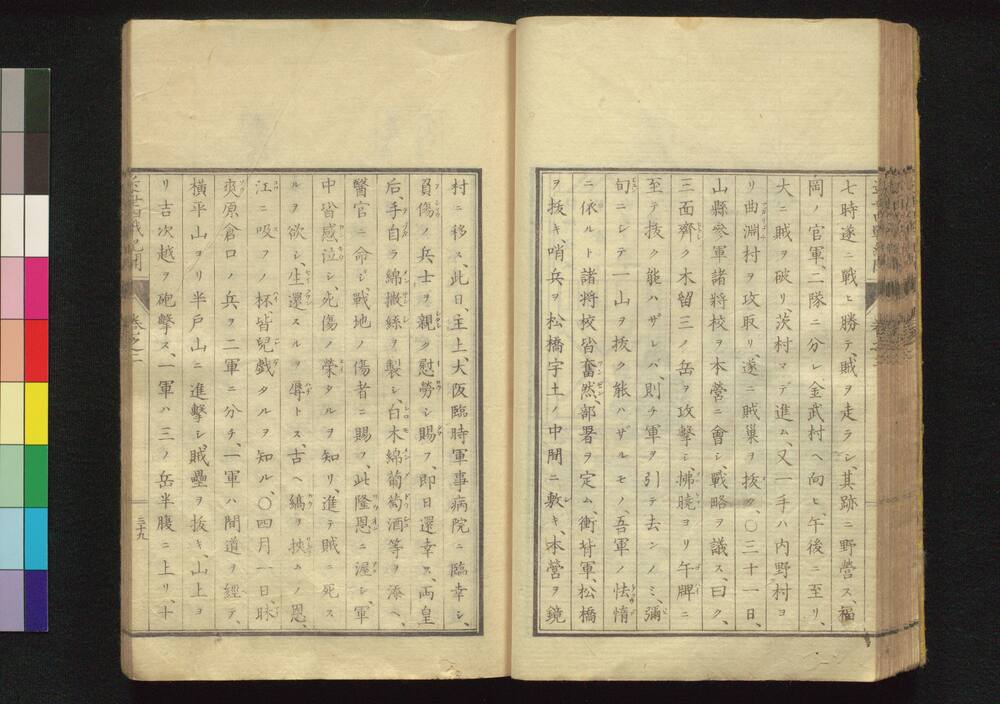 七時遂ニ戰ヒ勝テ、賊ヲ走ラシ、其跡ニ野營ス、福
岡ノ官軍、二隊ニ分レ金武村ヘ向ヒ、午後ニ至リ、
大ニ賊ヲ破リ、茨村マデ進ム、又一手ハ内野村ヨ
リ曲淵村ヲ攻取リ、遂ニ賊巢ヲ拔ク、〇三十一日、
山縣參軍諸將校ヲ本營ニ會シ、戰略ヲ議ス、曰ク、
三面齊ク木留三ノ岳ヲ攻擊シ、拂曉ヨリ午牌ニ
至テ拔ク能ハザレバ、則チ軍ヲ引テ去ンノミ、彌
旬ニシテ一山ヲ拔ク能ハザルモノ、吾軍ノ怯惰
ニ依ルト諸將校皆奮然、部署ヲ定ム、衝背軍、松橋
ヲ拔キ、哨兵ヲ松橋宇土ノ中間ニ敷キ、本營ヲ鏡
村ニ移ス、此日、主上、大阪臨時軍事病院ニ臨幸シ、
負傷ノ兵士ヲ親ク慰勞シ賜フ、即日還幸ス、両皇
后、手自ラ綿撒絲ヲ製シ、白木綿葡萄酒等ヲ添ヘ、
醫官ニ命ジ、戰地ノ傷者ニ賜フ、此隆恩ニ渥シ、軍
中皆感泣シ、死傷ノ榮タルヲ知リ、進テ賊ニ死ス
ルヲ欲シ、生還スルヲ辱トス、古ヘ纊ヲ挾ムノ恩、
江ニ吸フノ杯、皆兒戯タルヲ知ル、〇四月一日、昧
爽原倉口ノ兵ヲ二軍ニ分チ、一軍ハ間道ヲ經テ、
横平山ヨリ半戸山ニ進擊シ、賊壘ヲ拔キ、山上ヨ
リ吉次越ヲ砲擊ス、一軍ハ三ノ岳半腹ニ上リ、十
卷之二
三十九